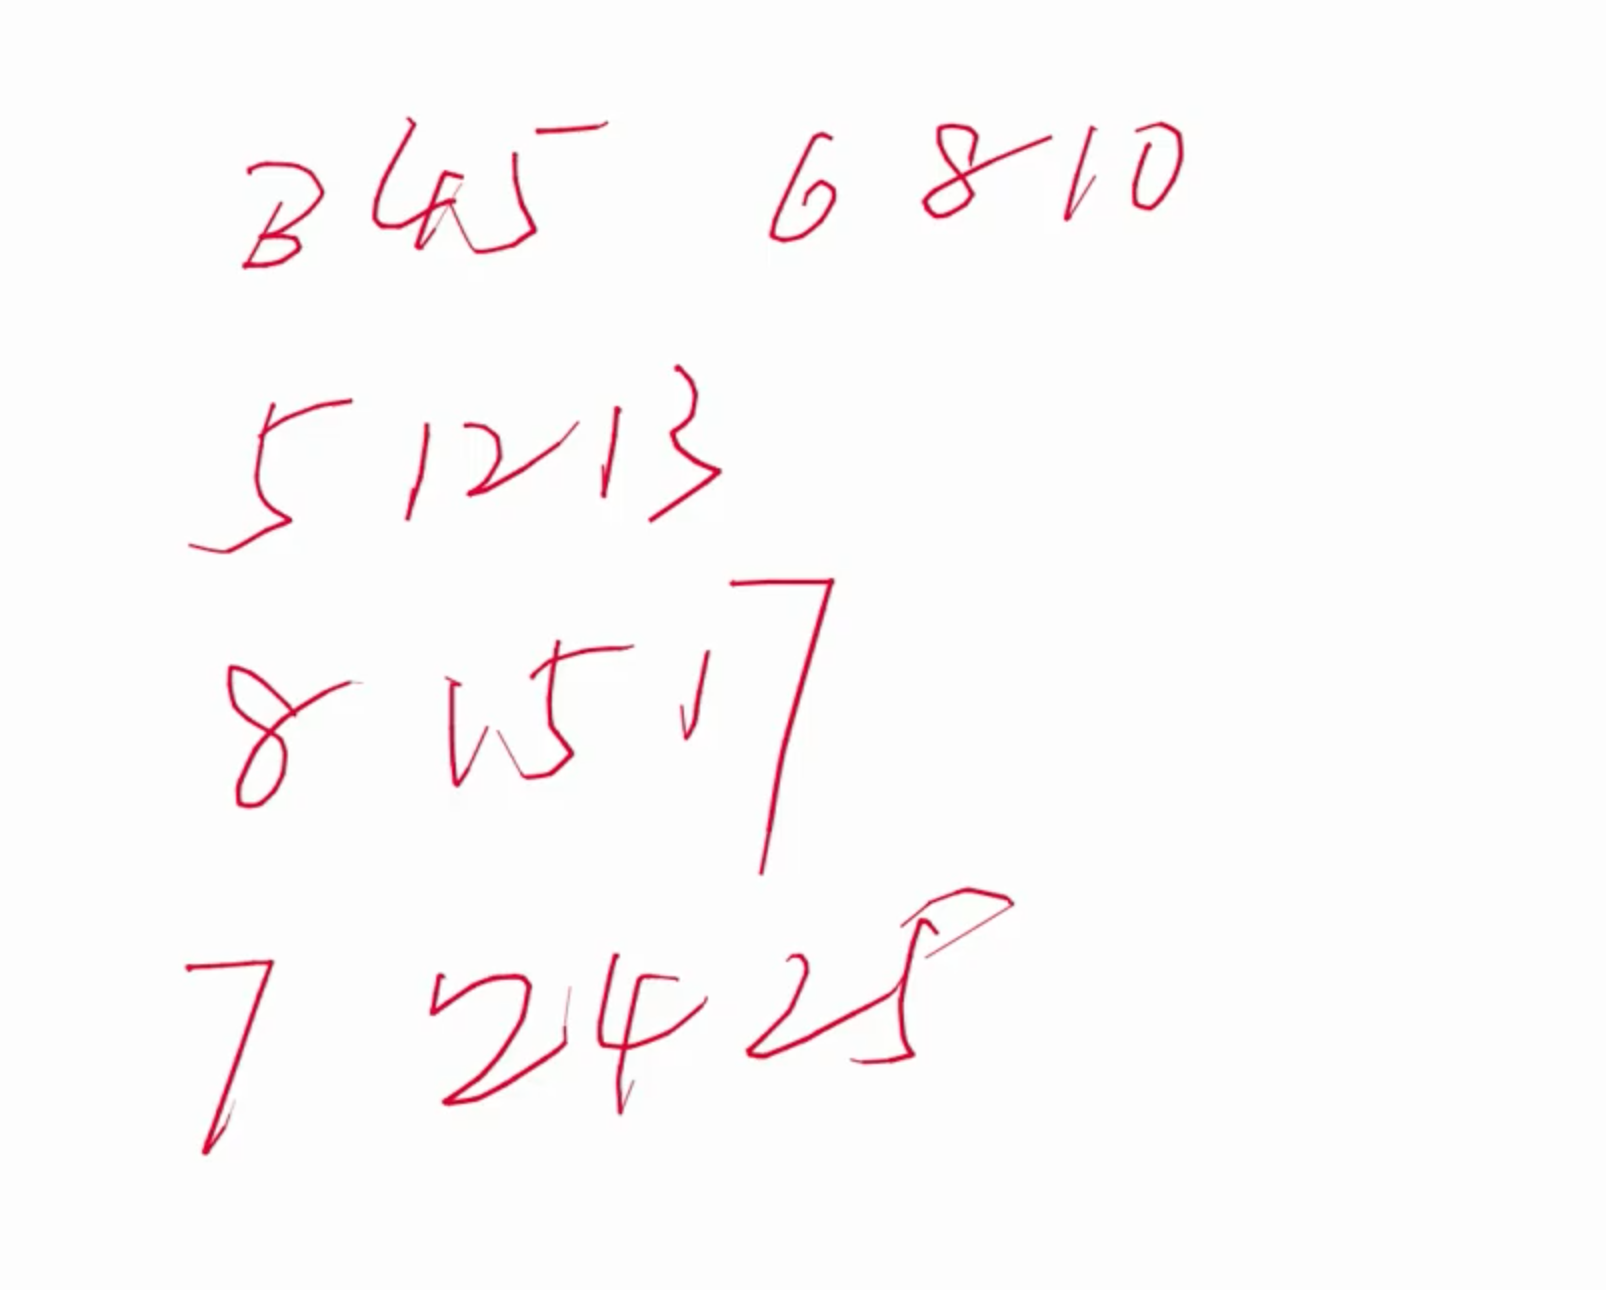 3 4 5 6 8 10
5 12 13
8 15 17
7 24 25